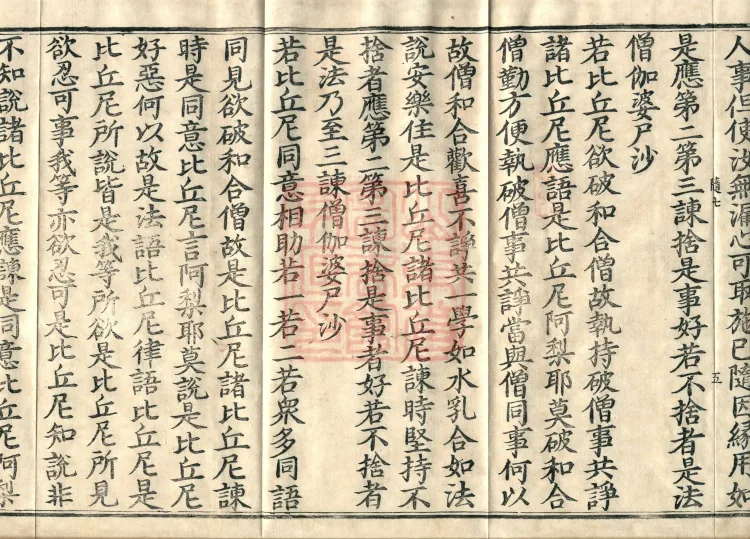 人事但使汝無漏心可取施已隨因緣用如
隨七 五
是應第二第三諫捨是事好若不捨者是法
僧伽婆尸沙
若比丘尼欲破和合僧故執持破僧事共諍
諸比丘尼應語是比丘尼阿梨耶莫破和合
僧勤方便執破僧事共諍當與僧同事何以
故僧和合歡喜不諍共一學如水乳合如法
說安樂住是比丘尼諸比丘尼諫時堅持不
捨者應第二第三諫捨是事者好若不捨者
是法乃至三諫僧伽婆尸沙
若比丘尼同意相助若一若二若衆多同語
同見欲破和合僧故是比丘尼諸比丘尼諫
時是同意比丘尼言阿梨耶莫說是比丘尼
好惡何以故是法語比丘尼律語比丘尼是
比丘尼所說皆是我等所欲是比丘尼所見
欲忍可事我等亦欲忍可是比丘尼知說非
不知說諸比丘尼應諫是同意比丘尼阿梨